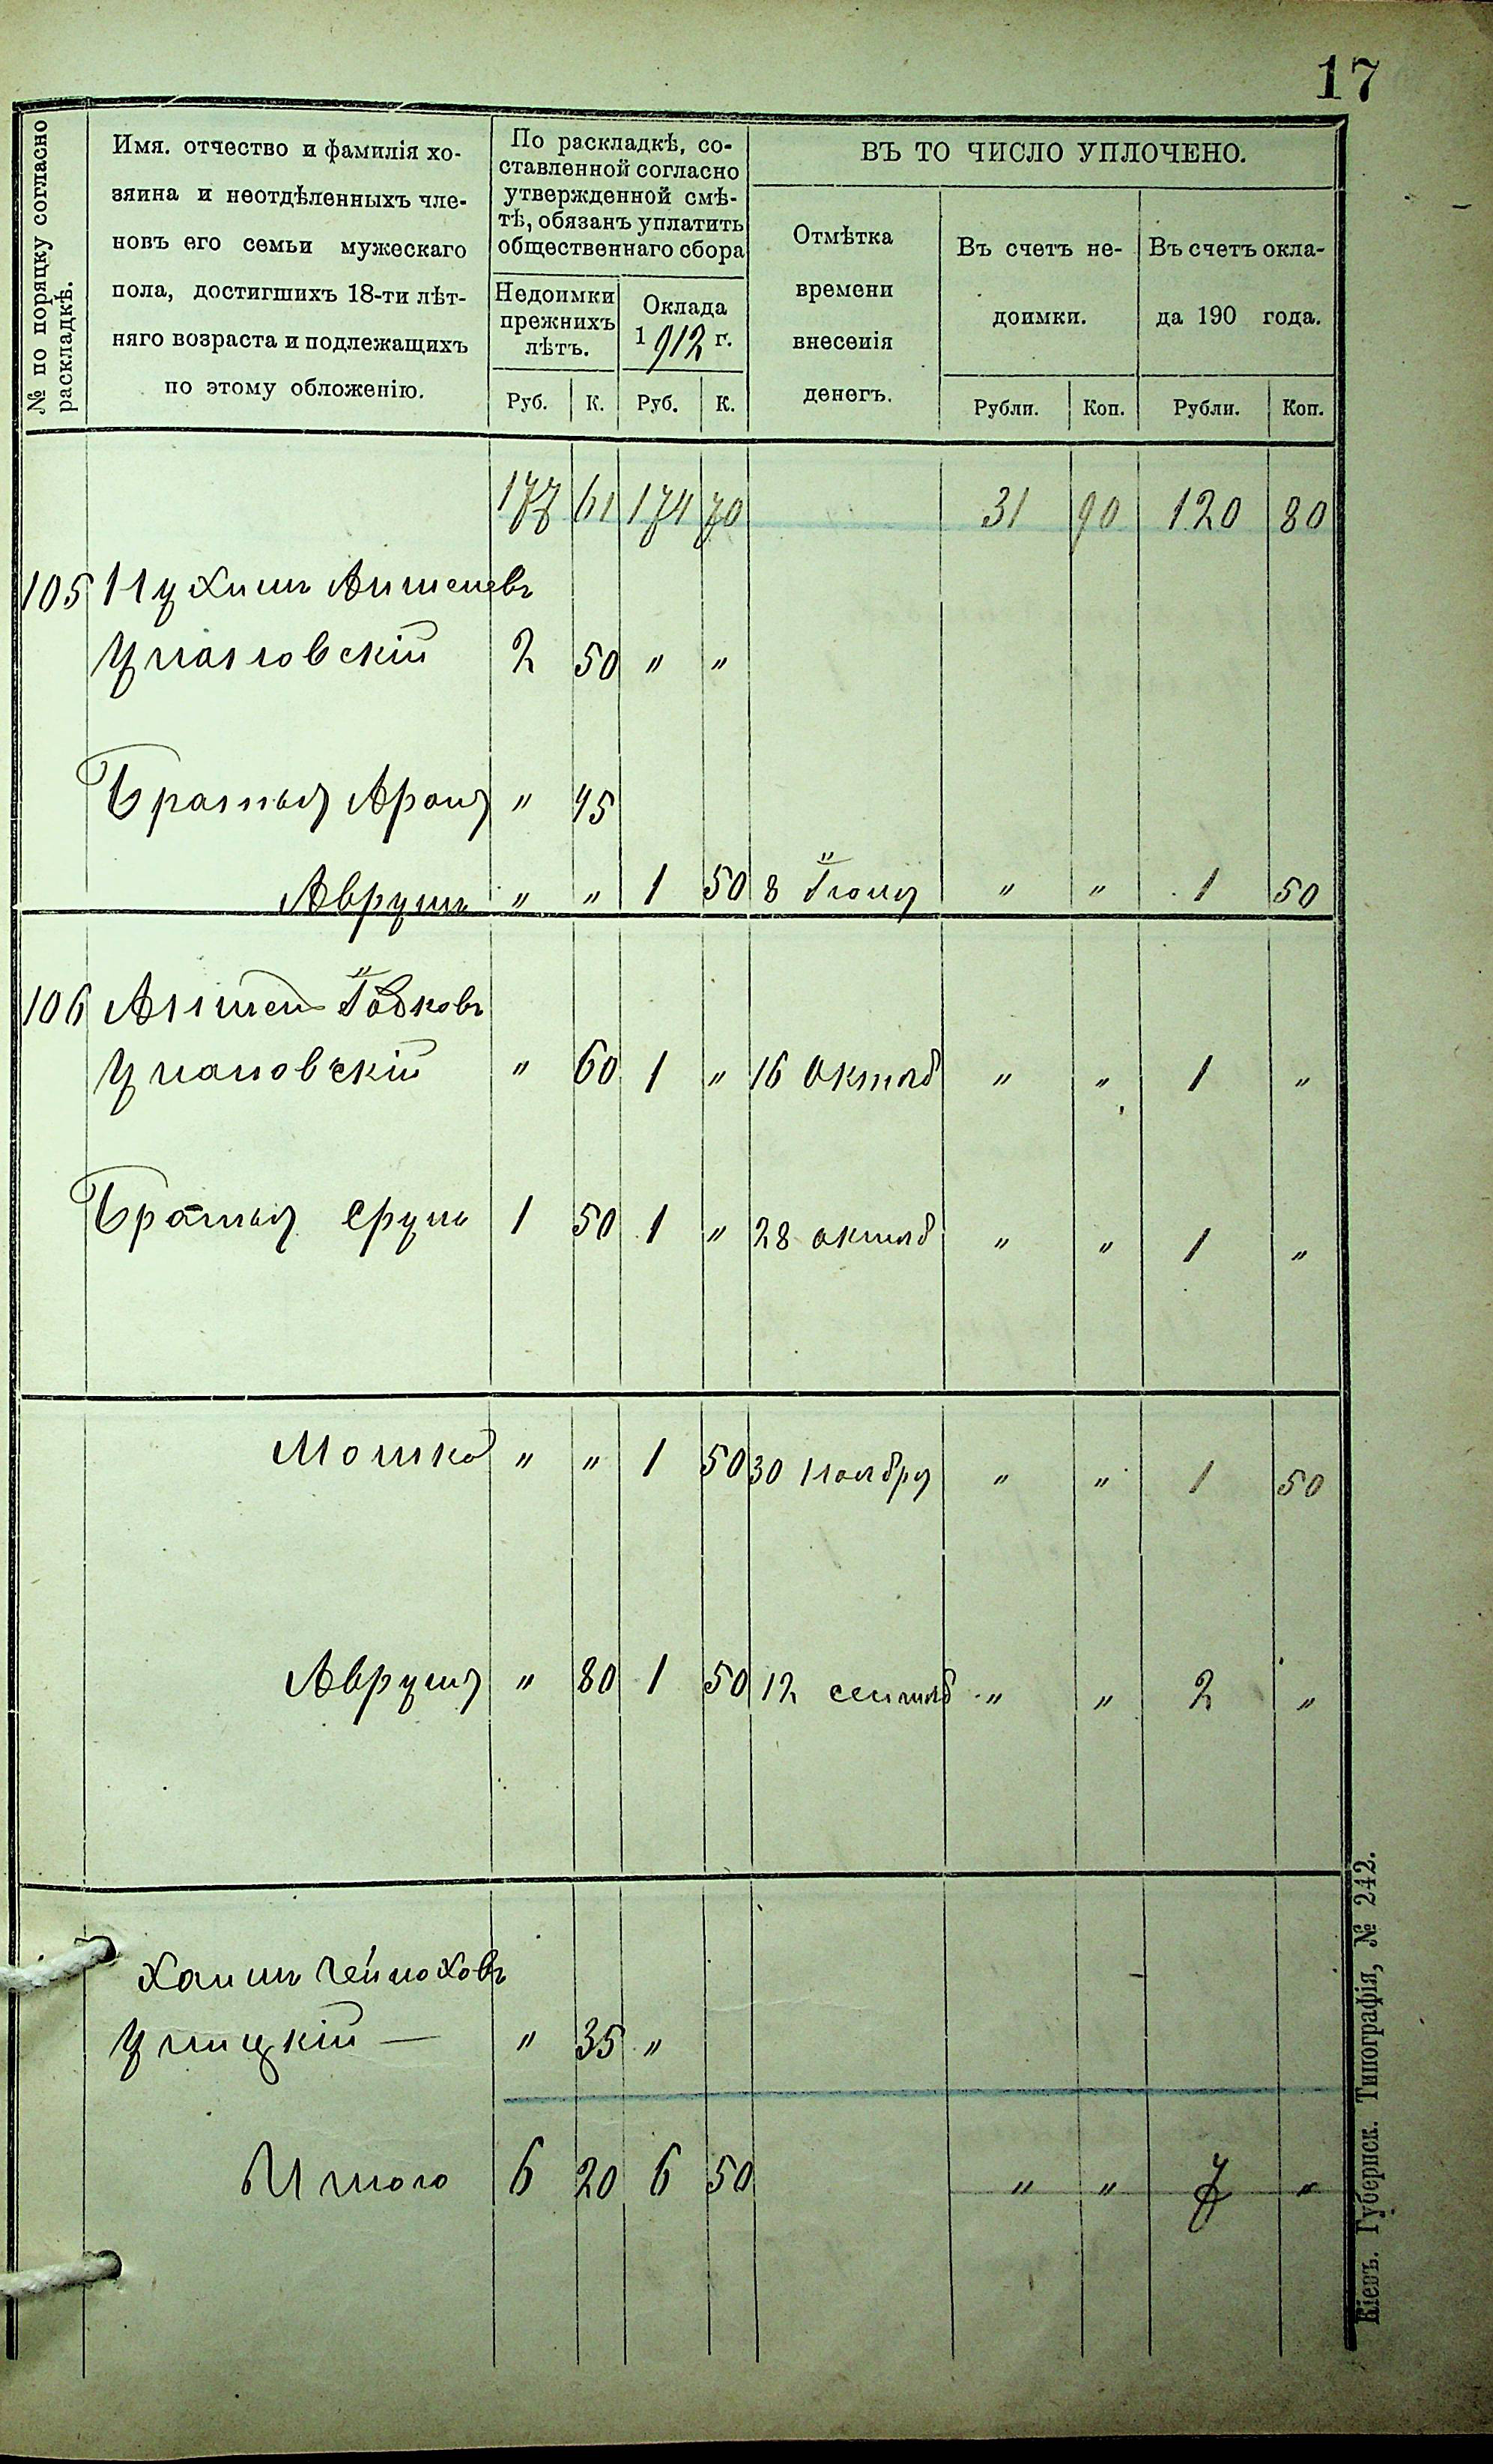 17
№ по порядку согласно раскладкѣ.
Имя. отчество и фамилія хо-
зяина и неотдѣленныхъ чле-
новъ его семьи мужескаго
пола, достигшихъ 18-ти лѣт-
няго возраста и подлежащихъ
по этому обложенію.
По раскладкѣ, со-
ставленной согласно
утвержденной смѣ-
тѣ, обязанъ уплатить
общественнаго сбора
Недоимки
прежнихъ
лѣтъ.
Оклада
1912 г.
Руб. К. Руб. К.
ВЪ ТО ЧИСЛО УПЛОЧЕНО.
Отмѣтка
времени
внесенія
денегъ.
Въ счетъ не-
доимки.
Въ счетъ окла-
да 190 года.
Рубли. Коп. Рубли. Коп.
177 61 174 70 31 90 120 80
105 Нухимъ Аншелевъ
Умановскій 2 50 " "
Братья Арона " 45
Аврумъ " " 1 50 8 Іюня " " 1 50
106 Аншель
Умановскій " 60 1 " 16 октяб " " 1 "
Братья Сруль 1 50 1 " 28 октяб " " 1 "
Мошко " " 1 50 30 Ноября " " 1 50
Аврума " 80 1 50 12 сентяб " " 2 "
Хаимъ
Улицкій — " 35 "
Итого 6 20 6 50 " " 7 "
Кіевъ. Губернск. Типографія, № 242.